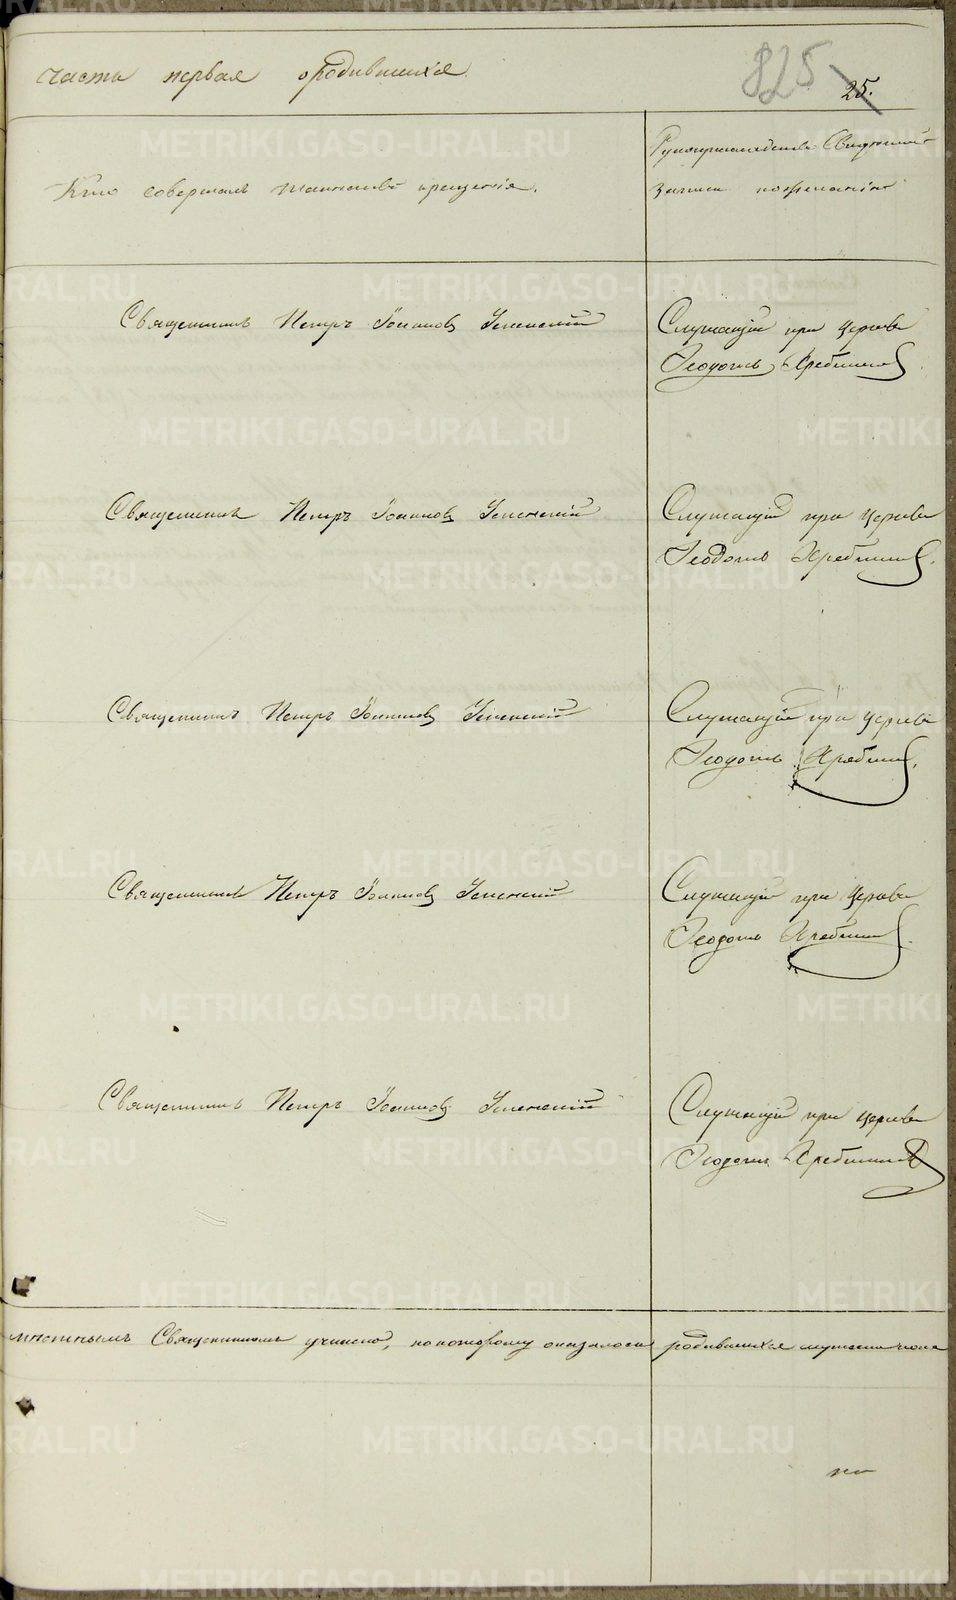 часть первая ородившихся
825
25.
Кто совершалъ таинство крещенія.
Рукоприкладство Свидѣтелей
записи по желанію
Священникъ Петръ Іоанновъ Успенскій
Служащій при церкви
Ѳеодотъ
Священникъ Петръ Іоанновъ Успенскій
Служащій при церкви
Ѳеодотъ
Священникъ Петръ Іоанновъ Успенскій
Служащій при церкви
Ѳеодотъ
Священникъ Петръ Іоанновъ Успенскій
Служащій при церкви
Ѳеодотъ
Священникъ Петръ Іоанновъ Успенскій
Служащій при церкви
Ѳеодотъ
мѣстнымъ Священникомъ учинено, по которому оказалось родившихся мужеска пола
METRIKI.GASO-URAL.RU